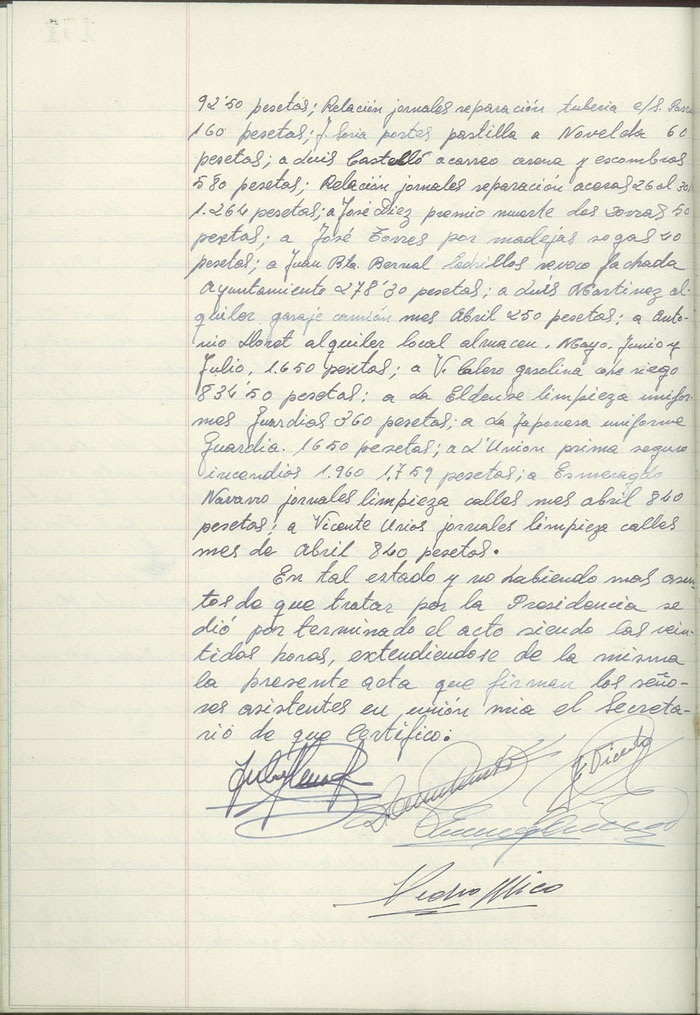 92'50 pesetas; Relación jornales reparación tuberia c/S.
160 pesetas; J. Soria portes pastilla a Novelda 60
pesetas; a Luis Castelló acarreo arena y escombros
580 pesetas; Relación jornales reparación aceras 26 al 30
1.264 pesetas; a José Diez premio muerte dos zorras 50
pesetas; a José Torres por madejas sogas 40
pesetas; a Juan Bta. Bernal ladrillos revoco fachada
Ayuntamiento 278'30 pesetas; a Luis Martinez al-
quiler garaje camión mes Abril 250 pesetas; a Anto-
nio Lloret alquiler local almacen, Mayo, Junio y
Julio, 1.650 pesetas; a V. Calero gasolina riego
834'50 pesetas; a La Eldense limpieza unifor-
mes Guardias 360 pesetas; a La Japonesa uniforme
Guardia. 1650 pesetas; a L'Union prima seguro
incendios 1.960 1,759 pesetas; a Esmeragdo
Navarro jornales limpieza calles mes abril 840
pesetas; a Vicente Urios jornales limpieza calles
mes de Abril 840 pesetas.
En tal estado y no habiendo mas asun-
tos de que tratar por la Presidencia se
dió por terminado el acto siendo las vein-
tidos horas, extendiendose de la misma
la presente acta que firman los seño-
res asistentes en unión mia el Secreta-
rio de que Certifico.
Vicente
Pedro Mico